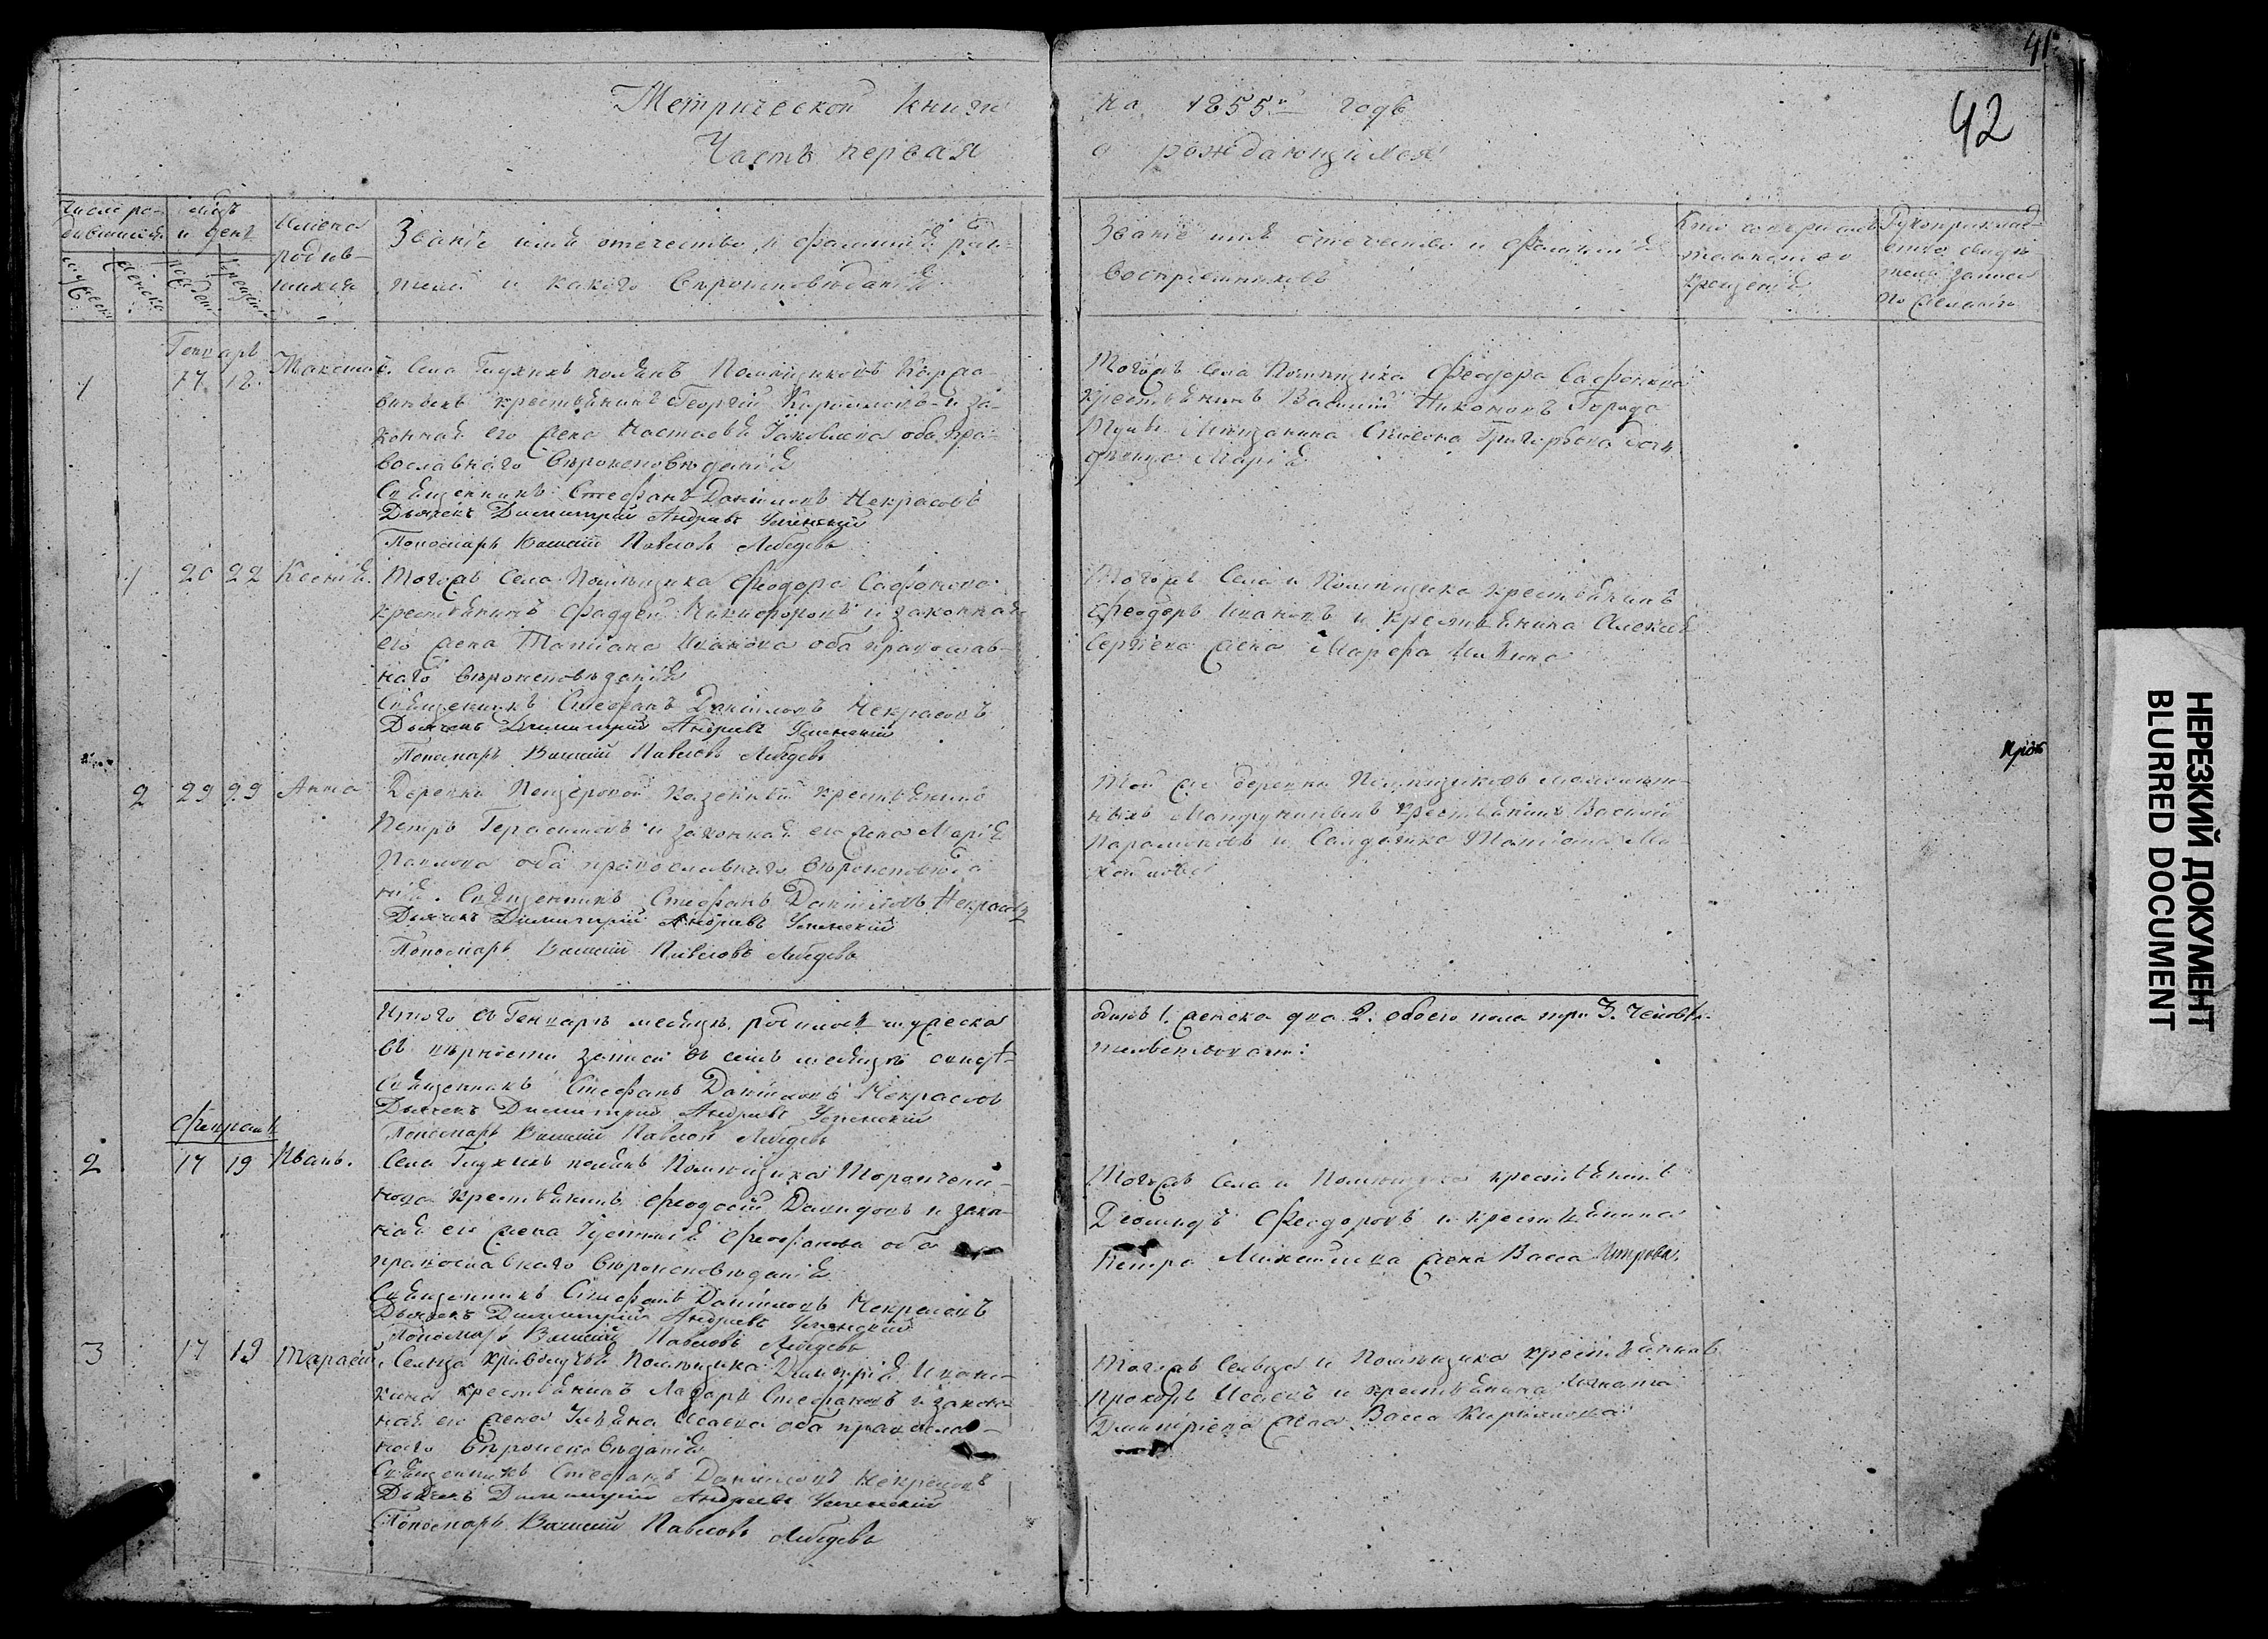 41
42
Метрической книги на 1855й годъ
Часть первая о раждающихся
Число ро-
дившихся
мужеска
женска
мсцъ
и день
рожден
крещен
Имена
родив-
шихся
Званіе имя отечество и фамилия роди-
телей и какого вѣроисповѣданія
Званіе имя отечество и фамилия
воспріемниковъ
Кто совершалъ
таинство
крещенія
Рукоприклад-
ство свидѣ-
телей записи
по желанію
Генварь
1 17 18 Максимъ. Села Глухихъ полянъ Помѣщиковъ
крестьянинъ Георгій Кириловъ и за-
конная его жена Настасья Іаковлева оба пра-
вославнаго вѣроисповѣданія
Священникъ Стефанъ Даниловъ Некрасовъ
Дьячекъ Димитрій Андреевъ Успенскій
Пономарь Василій Павловъ Лебедевъ
Тогожъ Села Помѣщика Феодора Сафонова
крестьянинъ Василій Никоновъ Города
Тулы Мѣщанина Симеона Григорьева дочь
дѣвица Марія
1 20 22 Ксенія. Тогожъ Села Помѣщика Феодора Сафонова
крестьянинъ Фаддей Никифоровъ и законная
его жена Татіана Иванова оба православ-
наго вѣроисповѣданія
Священникъ Стефанъ Даниловъ Некрасовъ
Дьячекъ Димитрій Андреевъ Успенскій
Пономарь Василій Павловъ Лебедевъ
Тогожъ Села и Помѣщика крестьянинъ
Феодоръ Ивановъ и крестьянина Алексея
Сергіева жена Марфа
2 29 29 Анна Деревни казенный крестьянинъ
Петръ Герасимовъ и законная его жена Марія
Павлова оба православнаго вѣроисповѣда
нія. Священникъ Стефанъ Даниловъ Некрасовъ
Дьячекъ Димитрій Андреевъ Успенскій
Пономарь Василій Павловъ Лебедевъ
Той же деревни Помѣщиковъ малолѣт-
ныхъ крестьянинъ Василій
и Солдатка Татіана Ми-
хайлова
Итого въ Генварѣ месяцѣ родилось мужеска одинъ 1. женска два 2. обоего пола три 3. человѣ.
въ вѣрности записи въ семъ месяцѣ свидѣ-
тельствуютъ:
Священникъ Стефанъ Даниловъ Некрасовъ
Дьячекъ Димитрій Андреевъ Успенскій
Пономарь Василій Павловъ Лебедевъ
Февраль
2 17 19 Иванъ. Села Глухихъ полянъ Помѣщика
крестьянинъ Феодосій Давидовъ и зако-
ная его жена Іустинія Феофанова оба
православнаго вѣроисповѣданія
Священникъ Стефанъ Даниловъ Некрасовъ
Дьячекъ Димитрій Андреевъ Успенскій
Пономарь Василій Павловъ Лебедевъ
Тогожъ Села и Помѣщика крестьянинъ
Діомидъ Феодоровъ и крестьянина
Петра Михайлова жена Васса Петрова.
3 17 19 Тарасій. Сельца Помѣщика Димитрія
крестьянинъ Лазарь Стефановъ и закон-
ная его жена Ульяна Исаева оба православ-
наго вѣроисповѣданія
Священникъ Стефанъ Даниловъ Некрасовъ
Дьячекъ Димитрій Андреевъ Успенскій
Пономарь Василій Павловъ Лебедевъ
Тогожъ Сельца и Помѣщика крестьянинъ
Прохоръ Исаевъ и крестьянина Игната
Димитріева жена Васса
НЕРЕЗКИЙ ДОКУМЕНТ
BLURRED DOCUMENT